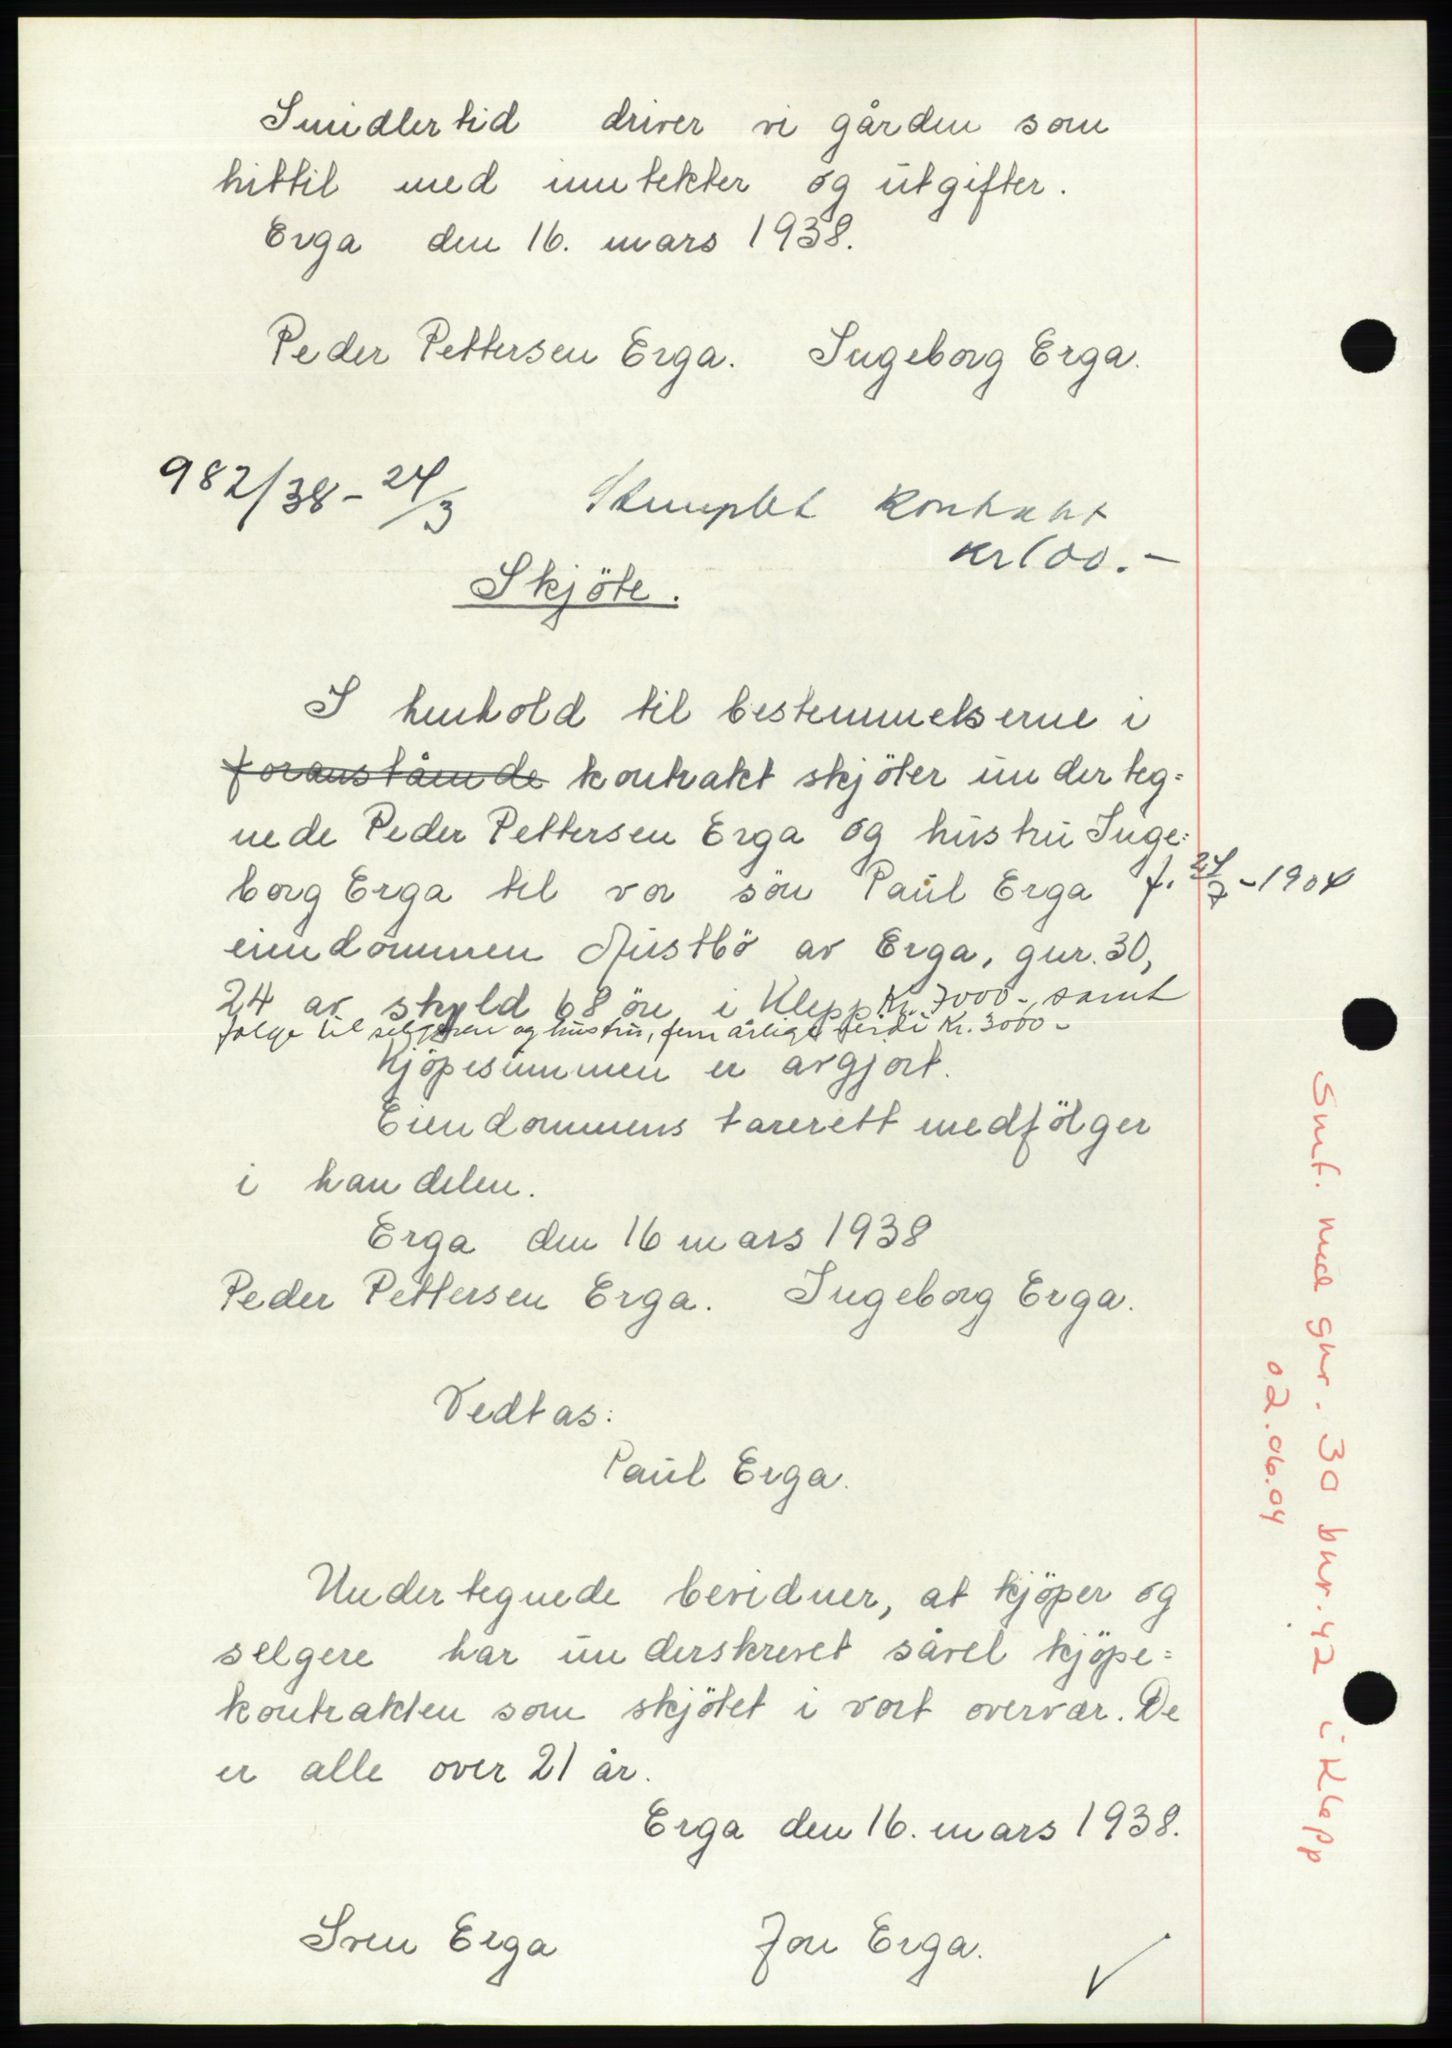 Imidlertid driver vi gården som
hittil med inntekter og utgifter.
Erga den 16. mars 1938.
Peder Pettersen Erga. Ingeborg Erga.
982/38 - 24/3
Stemplet kontrakt
kr 100.-
Skjöte.
I henhold til bestemmelserne i
foranstående kontrakt skjöter underteg=
nede Peder Pettersen Erga og hustru Inge=
borg Erga til vor sön Paul Erga f. 24/7 - 1904
eiendommen Austbö av Erga, gnr. 30,
24 av skyld 68 öre i Klepp Kr. 7000-, samt
følge til selgeren og hustru, fem årlige verdi Kr. 3000-
Kjöpesummen er avgjort.
Eiendommens tarerett medfölger
i handelen.
Erga den 16 mars 1938
Peder Pettersen Erga. Ingeborg Erga.
Vedtas:
Paul Erga.
Undertegnede bevidner, at kjöper og
selgere har underskrevet såvel kjöpe=
kontrakten som skjötet i vort overvær. De
er alle over 21 år.
Erga den 16. mars 1938.
Sven Erga Jon Erga.
Smf. med gnr. 30 bnr. 42 i Klepp
02.06.04